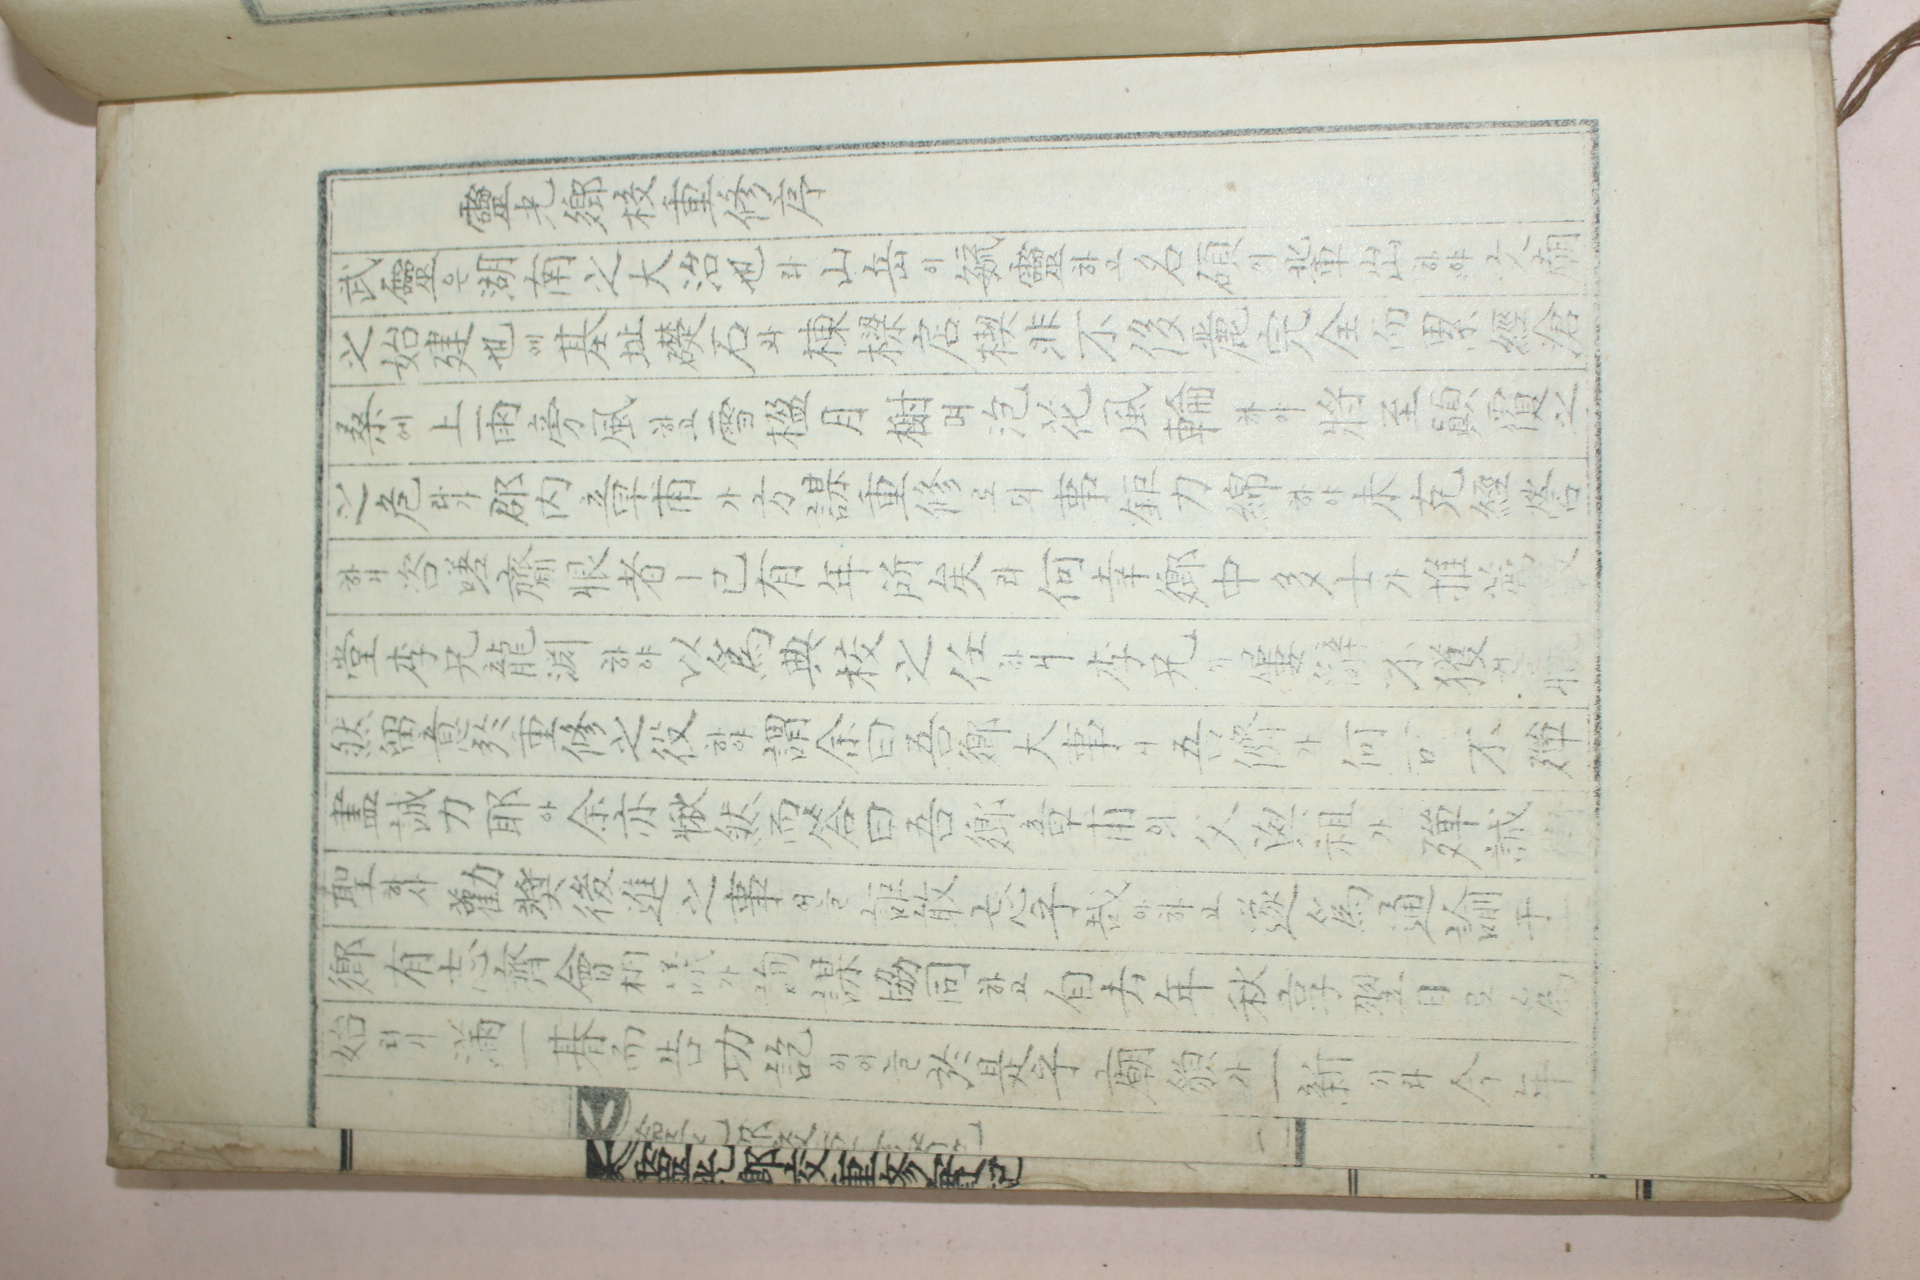 靈光鄕校重修序
武靈은湖南之大治也라山岳이毓靈하고名碩이輩出하야文廟
之始建也에基址礎石과棟樑扂楔非不侈麗完全而累經滄
桑에上雨旁風하고雪楹月榭며泡花風輪하야將至顚覆之
之危라가郡內章甫가方謀重修로되事鉅力綿하야未克經營
하니咨嗟齎恨者ㅣ已有年所矣라何幸鄕中多士가推
堂李兄龍淵하야以爲典校之任하니李兄이屢辭不獲
然留意於重修之役하야謂余曰吾鄕大事시吾儕가何可不殫
盡誠力耶아余亦愀然而答曰吾鄕章甫의父與祖가殫誠
聖하사勸奬後進之事어늘詎敢忘乎哉아하고遂爲通諭于一
鄕有志齊會相議가詢謀協同하고自去年秋享翌日로爲
始러니滿一朞而告功訖이어늘於是乎廟貌가一新이라今年
靈光鄕校重修實記
二